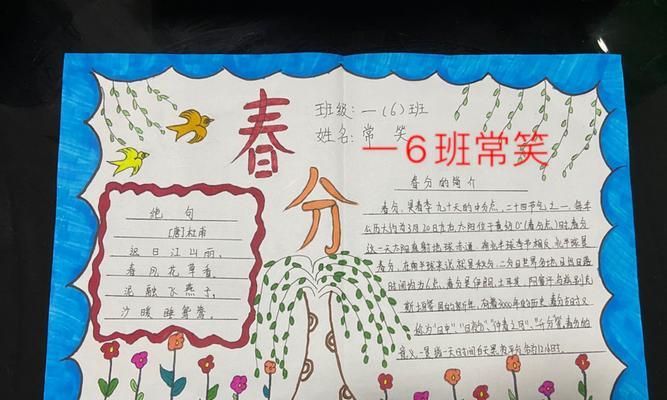 春分
班级:一(6)班
姓名:常笑
一6班常笑
绝句
[唐]杜甫
迟日江山丽,
春风花草香。
泥融飞燕子,
沙暖睡鸳鸯。
春分的简介
春分,是春季九十天的中分点,二十四节气之一,每年
公历大约为3月20日左右,太阳位于黄经0°(春分点)时,春分
这一天太阳直射地球赤道,南北半球季节相反,北半球是
春分,在南半球来说就是秋分。
时间均为6点,春分是伊朗、土耳其、阿富汗
斯坦等国的新年,有着3000年的历史,春分古时又
称为"日中"、"日夜分"、"仲春之月"、
意义,一是指一天时间白天黑夜平分各为12小时,